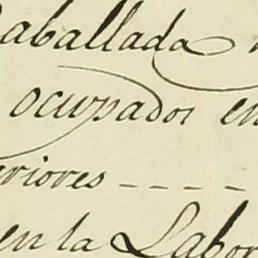 caballada
ocupados en
eriores - - - -
en la Labor